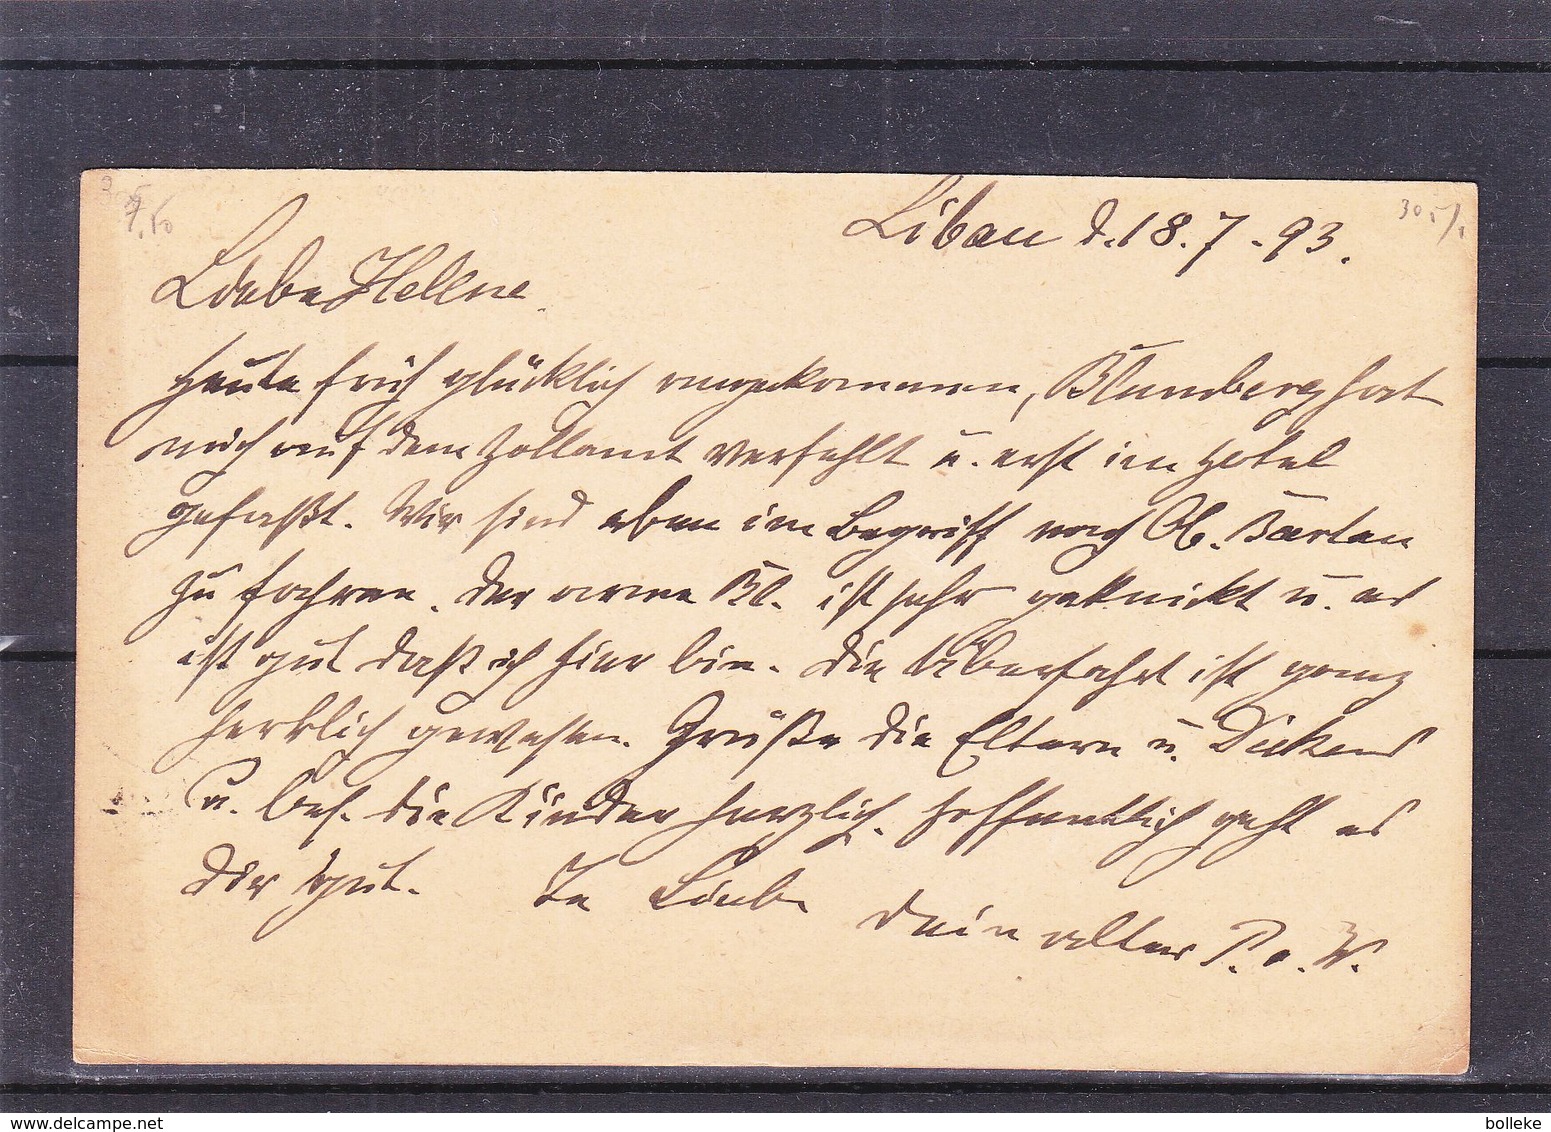 Libau d. 18. 7. 93.
Liebe Hellne
Heute früh glücklich angekommen, Blumberg hat
mich auf dem Zollamt verfehlt u. erst im Hotel
gefaßt. Wir sind eben im Begriff nach Ob. Bartau
zu fahren. Der arme Bl. ist sehr geknickt u. es
ist gut daß ich hier bin. Die Überfahrt ist ganz
herrlich gewesen. Grüße die Eltern u. Dickens
u. bes. die Kinder herzlich. Hoffentlich geht es
Dir gut. In Liebe
Dein alter P. v. W.
www.delcampe.net
bolleke